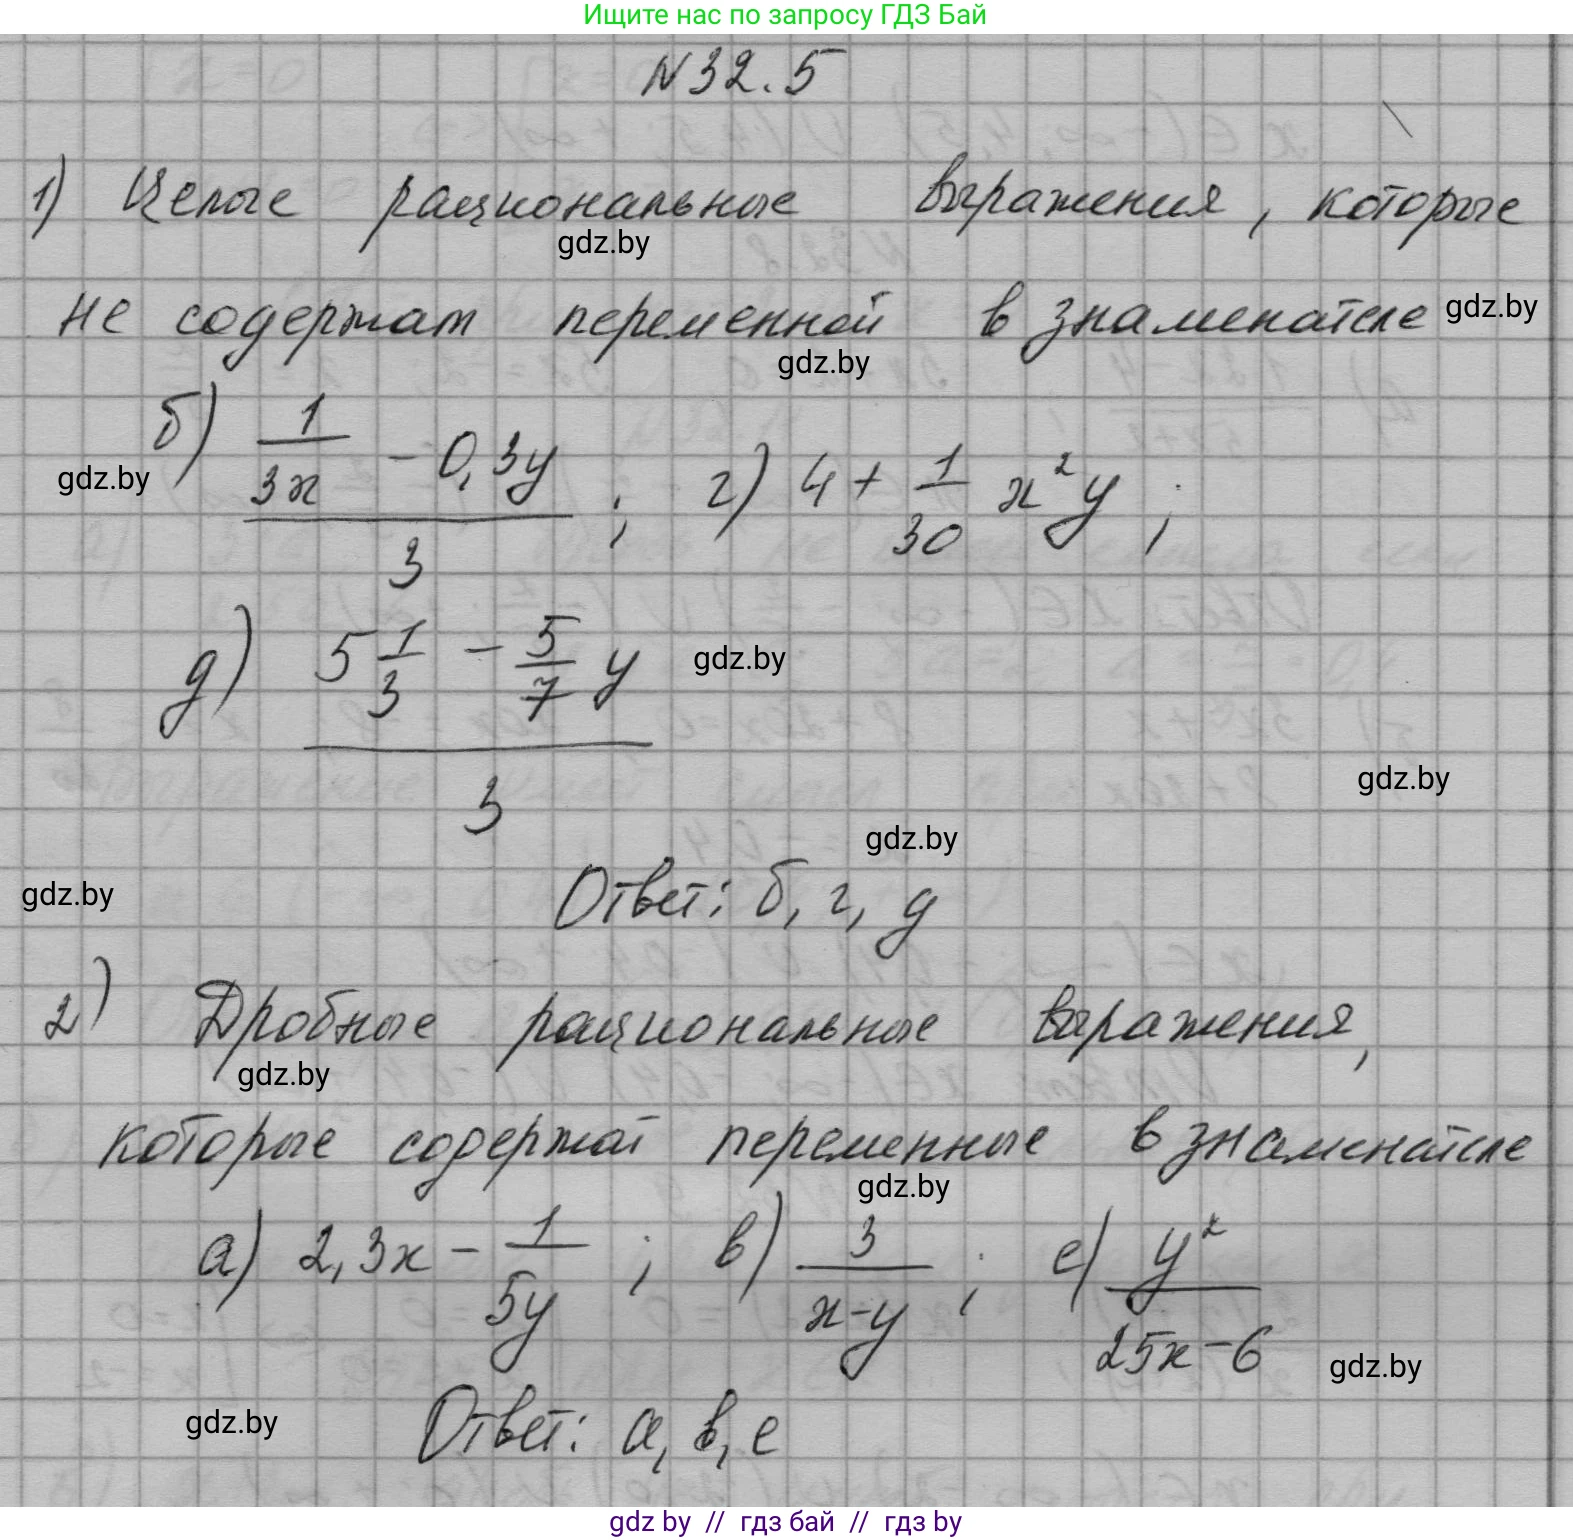 Ищите нас по запросу ГДЗ Бай
N32.5
1) Целые рациональные выражения, которые
gdz.by
не содержат переменной в знаменателе gdz.by
gdz.by
б) (1/(3x) - 0,3y)/3 ; г) 4 + 1/30 x²y ;
gdz.by
д) (5 1/3 - 5/7 y)/3
gdz.by
gdz.by
gdz.by
Ответ: б, г, д
gdz.by
2) Дробные рациональные выражения,
gdz.by
которые содержат переменные в знаменателе
gdz.by
а) 2,3x - 1/(5y) ; в) 3/(x-y) ; е) y²/(25x-6)
gdz.by
gdz.by
Ответ: а, в, е
gdz by // гдз бай // гдз by